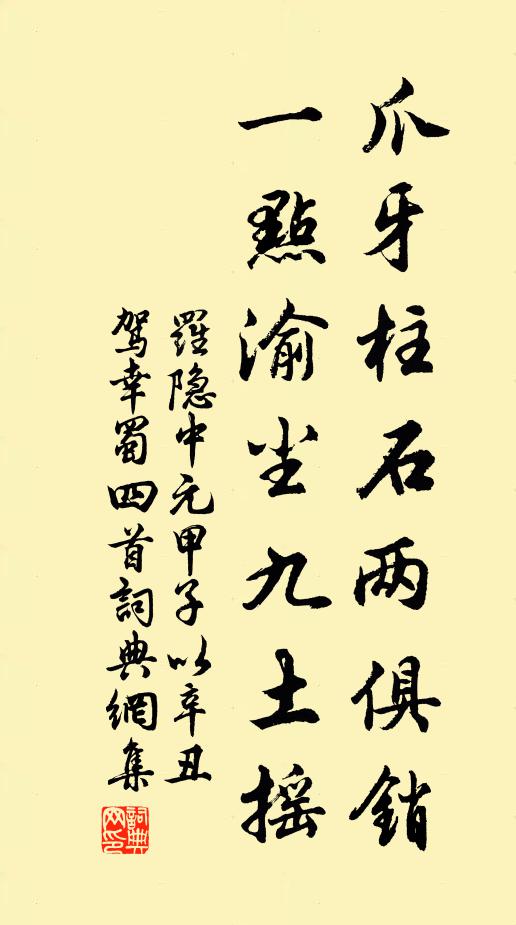 爪牙柱石两俱銷
一點渝尘九土摇
羅隐中元甲子以辛丑
駕幸蜀四首詞典網集
詞典网印